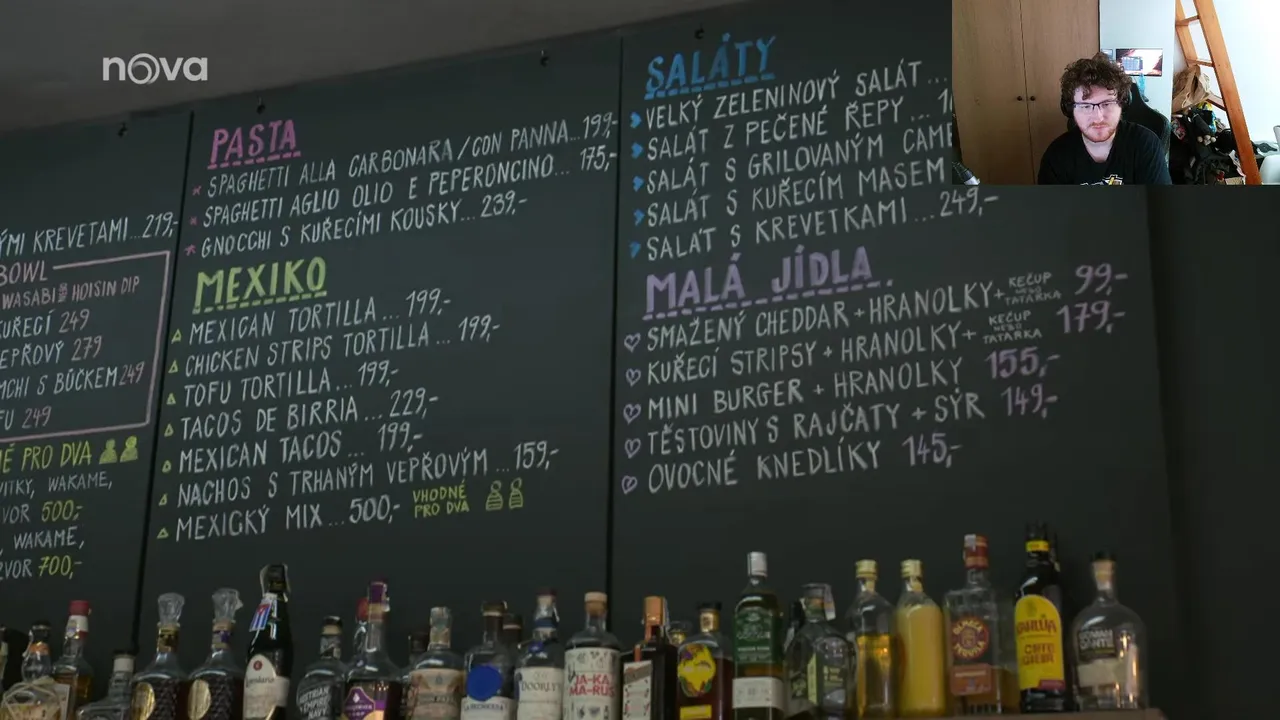 nova
ÝMI KREVETAMI...219,-
BOWL
WASABI HOISIN DIP
KUŘECÍ 249
VEPŘOVÝ 279
MCHI S BŮČKEM 249
FU 249
NÉ PRO DVA
VITKY, WAKAME,
VOR 500,-
, WAKAME,
ZVOR 700,-
PASTA
SPAGHETTI ALLA CARBONARA/CON PANNA...199,-
SPAGHETTI AGLIO OLIO E PEPERONCINO...175,-
GNOCCHI S KUŘECÍMI KOUSKY...239,-
MEXIKO
MEXICAN TORTILLA...199,-
CHICKEN STRIPS TORTILLA...199,-
TOFU TORTILLA...199,-
TACOS DE BIRRIA...229,-
MEXICAN TACOS...199,-
NACHOS S TRHANÝM VEPŘOVÝM...159,-
MEXICKÝ MIX...500,- VHODNÉ PRO DVA
SALÁTY
VELKÝ ZELENINOVÝ SALÁT...
SALÁT Z PEČENÉ ŘEPY...
SALÁT S GRILOVANÝM CAME
SALÁT S KUŘECÍM MASEM
SALÁT S KREVETKAMI...249,-
MALÁ JÍDLA
SMAŽENÝ CHEDDAR + HRANOLKY + KEČUP NEBO TATARKA 99,-
KUŘECÍ STRIPSY + HRANOLKY + KEČUP NEBO TATARKA 179,-
MINI BURGER + HRANOLKY 155,-
TĚSTOVINY S RAJČATY + SÝR 149,-
OVOCNÉ KNEDLÍKY 145,-
DOORLY'S
JA-KA
MA-RUS
KAHLÚA